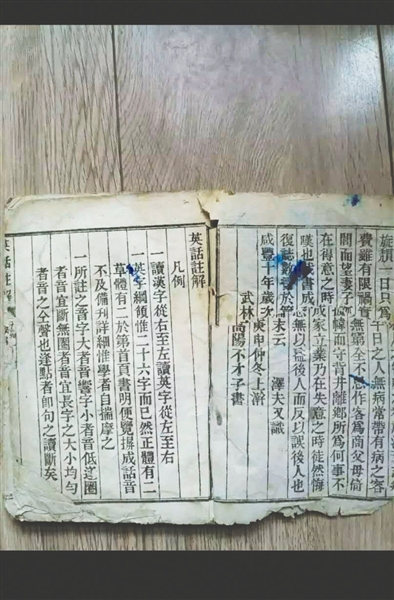 旋頹一日只爲千日之人無病常帶有病之容
費雖有限禍害無窮第全不作客爲商父母倚
閭而望妻子幃而守背井離鄉所爲何事不
在得意之時成家立業乃在失意之時徒然悔
嘆也哉書成無以益後人而反以誤後人也
復誌數於管末云 澤夫又識
咸豐十年歲次庚申仲冬上澣
武林高陽不才子書
英話註解
凡例
一讀漢字從右至左讀英字從左至右
一英字綱領惟二十六字而已然正體有二
草體有二於第首頁書明便覽攥成話音
不及備刊詳細惟學者自揣摩之
一所註之音字大者音響字小者音低逐圈
者音宜斷無圈者音宜長字之大小均勻
者音之全聲也逢點者卽句之讀斷矣
英話註解